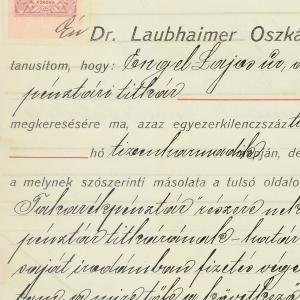 KORONA
Én Dr. Laubhaimer Oszká
tanusítom, hogy: Engel Lajos úr, a
pénztári titkár
megkeresésére ma, azaz egyezerkilenczszázti
hó tizenharmadik napján, de
a melynek szószerinti másolata a tulsó oldalo
Takarékpénztár részére nek
pénztár titkárának – határ
saját irodámban fizetés vége